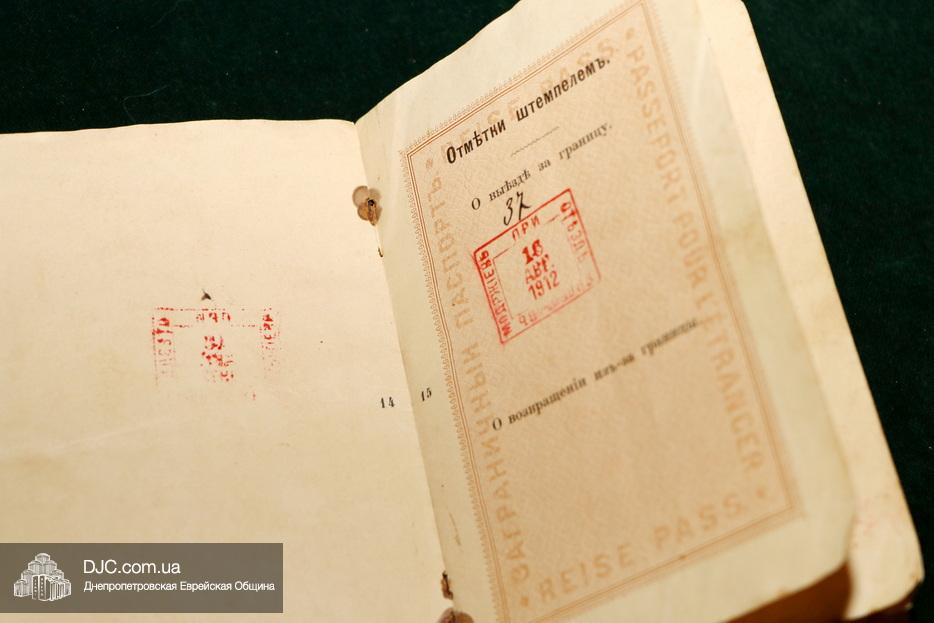 14
15
Отмѣтки штемпелемъ.
О выѣздѣ за границу.
37
ПРИ
ОТѢЗДѢ
18
АВГ.
1912
О возвращеніи изъ-за границы
ЗАГРАНИЧНЫЙ ПАСПОРТЪ
REISE PASS
PASSEPORT POUR L'ETRANGER
REISE PASS.
DJC.com.ua
Днепропетровская Еврейская Община